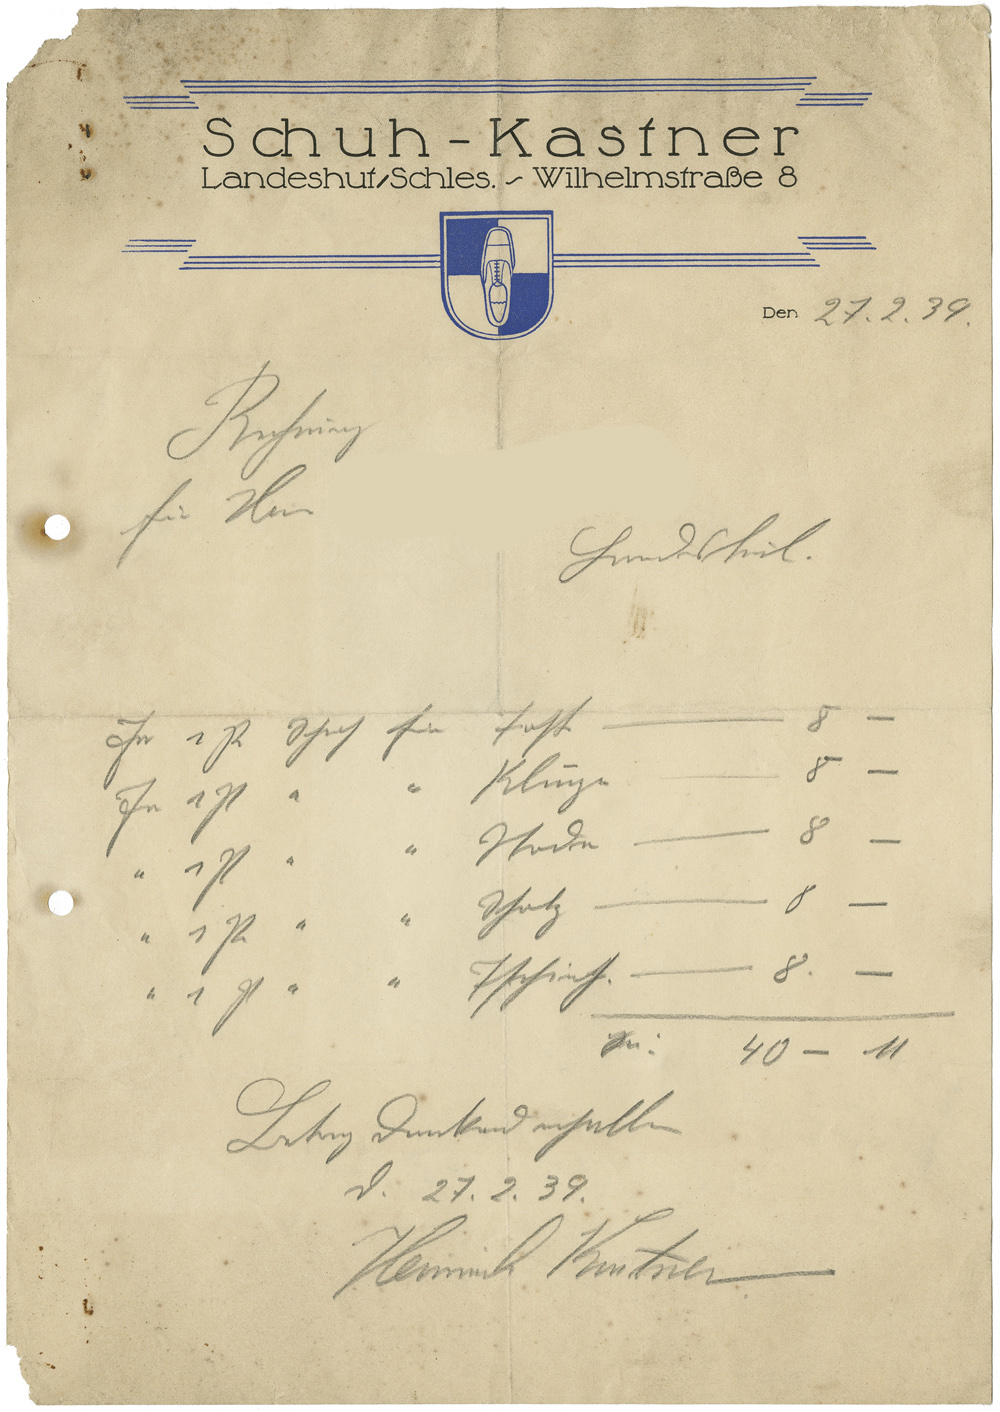 Schuh-Kastner
Landeshut/Schles. ~ Wilhelmstraße 8
Den 27. 2. 39.
Rechnung
für Herrn
Landeshut.
1 P Schuh für — 8 —
1 P " " Kluge — 8 —
" 1 P " " — 8 —
" 1 P " " Scholz — 8 —
" 1 P " " — 8. —
40 — M
Betrag dankend erhalten
d. 27. 2. 39.
Heinrich Kastner